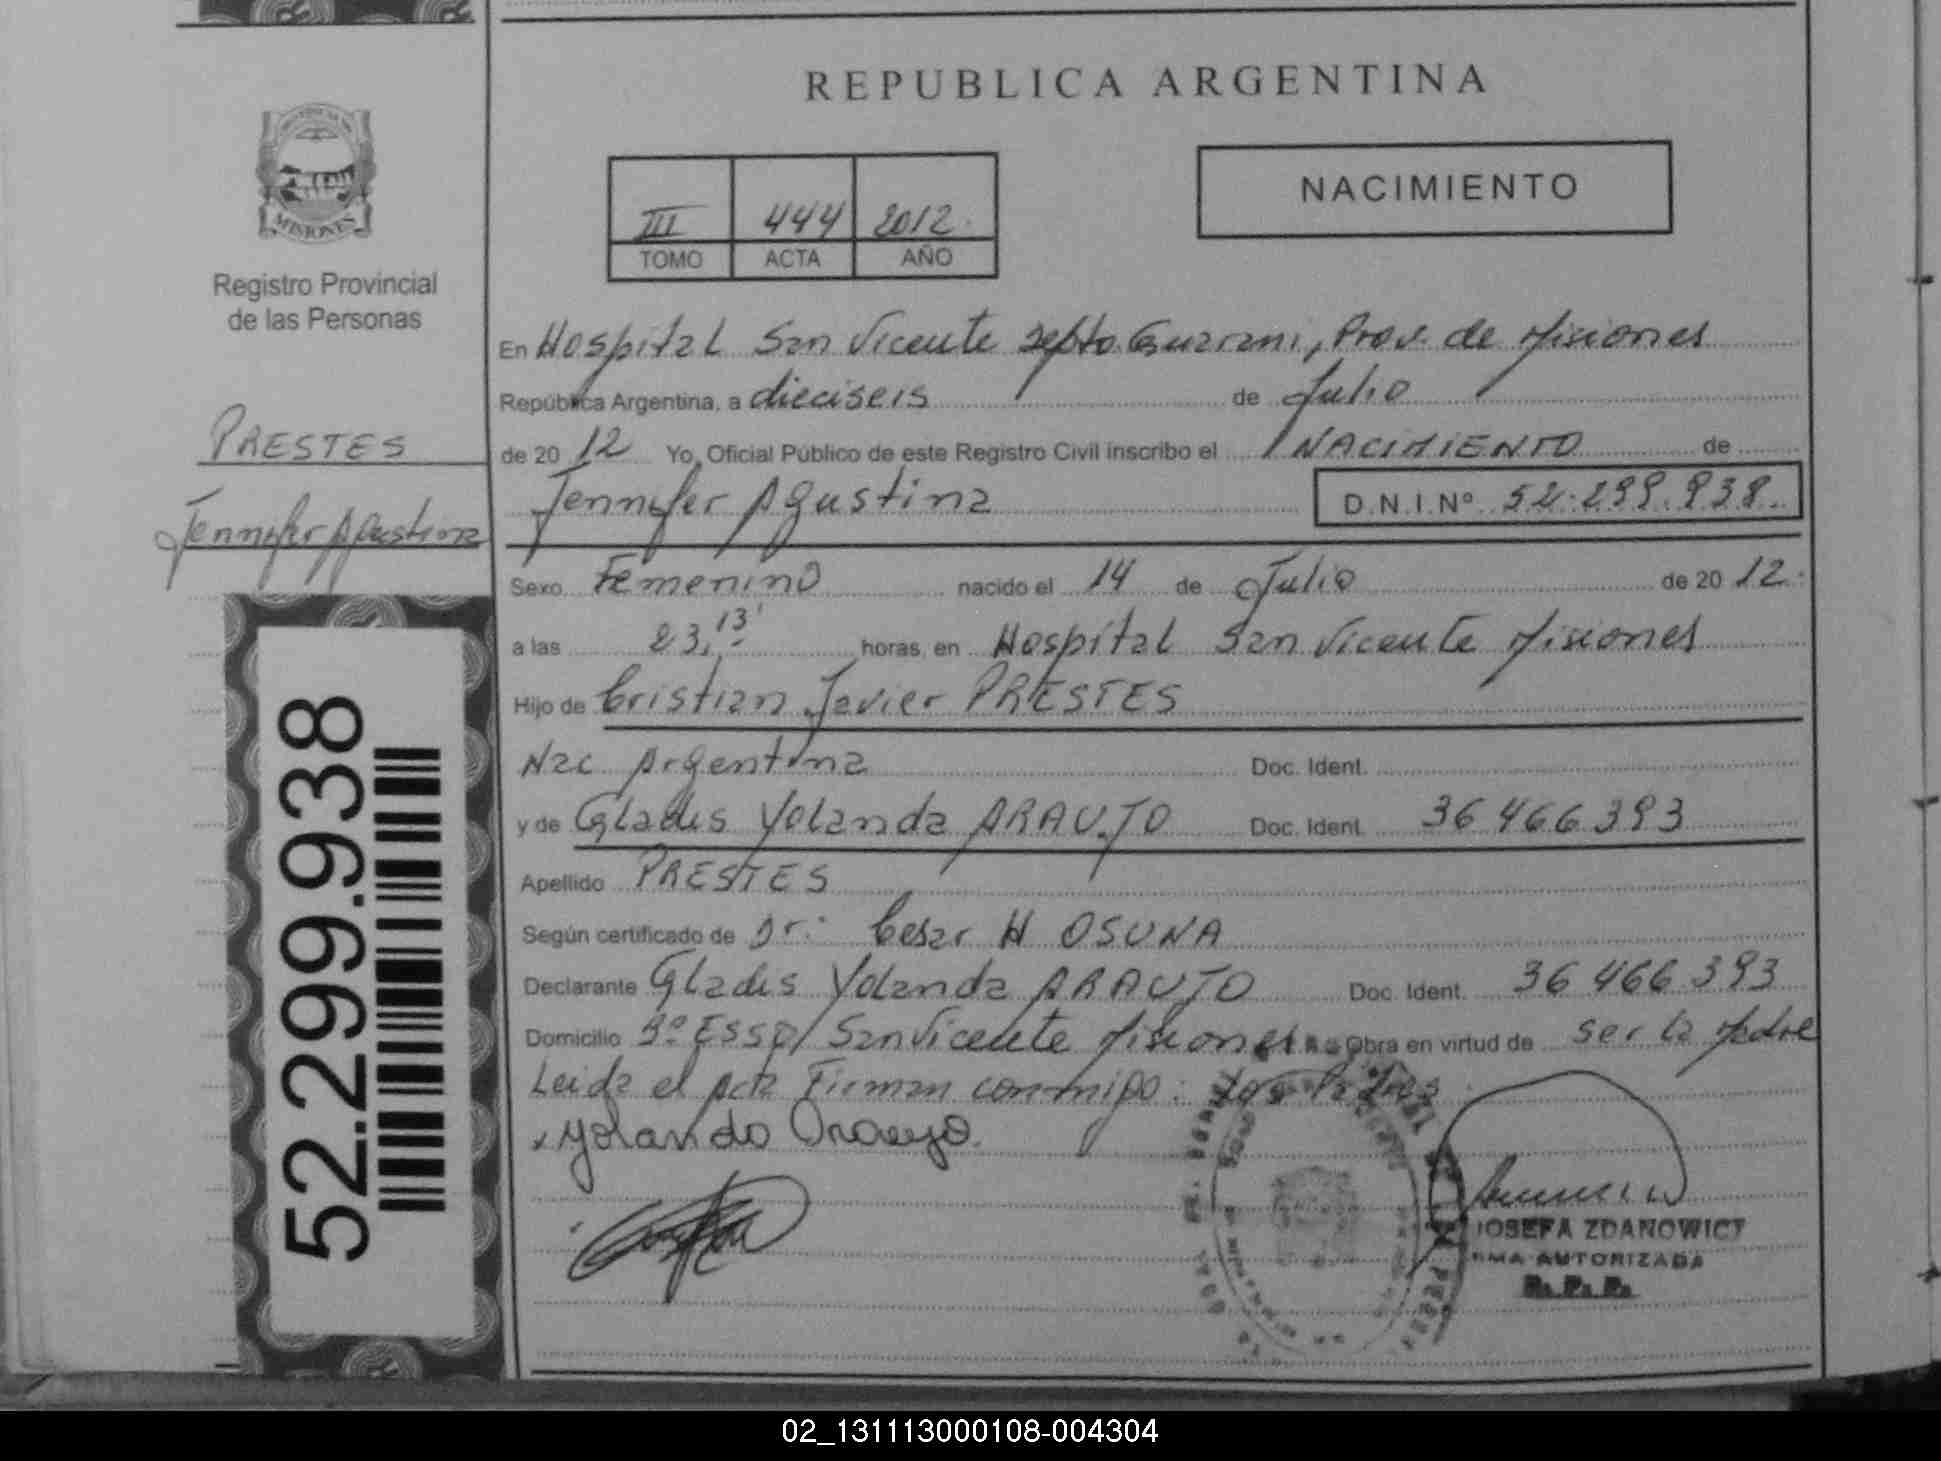 MISIONES
Registro Provincial
de las Personas
PRESTES
Jennifer Agustina
52.299.938
REPUBLICA ARGENTINA
III 444 2012.
TOMO ACTA AÑO
NACIMIENTO
En Hospital San Vicente Depto. Guarani, Prov. de Misiones
República Argentina, a dieciseis de Julio
de 20 12 Yo, Oficial Público de este Registro Civil inscribo el NACIMIENTO de
Jennifer Agustina D.N.I.Nº 52.299.938.
Sexo Femenino nacido el 14 de Julio de 20 12.
a las 23,13' horas, en Hospital San Vicente Misiones
Hijo de Cristian Javier PRESTES
Nac Argentina Doc. Ident.
y de Gladis Yolanda ARAUJO Doc. Ident. 36 466 393
Apellido PRESTES
Según certificado de Dr: Cesar H OSUNA
Declarante Gladis Yolanda ARAUJO Doc. Ident. 36 466 393
Domicilio Bº ESSO, San Vicente Misiones Obra en virtud de ser la Madre
Leida el Acta Firman conmigo: Los Padres
Yolanda Araujo.
JOSEFA ZDANOWICZ
FIRMA AUTORIZADA
R.P.P.
02_131113000108-004304